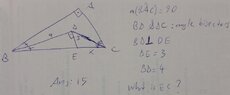 A
m(BAC)=90
BD DC: angle bisectors
BD ⊥ DE
DE = 3
BD = 4
what is EC?
D
4
3
B
E
C
Ans: 15